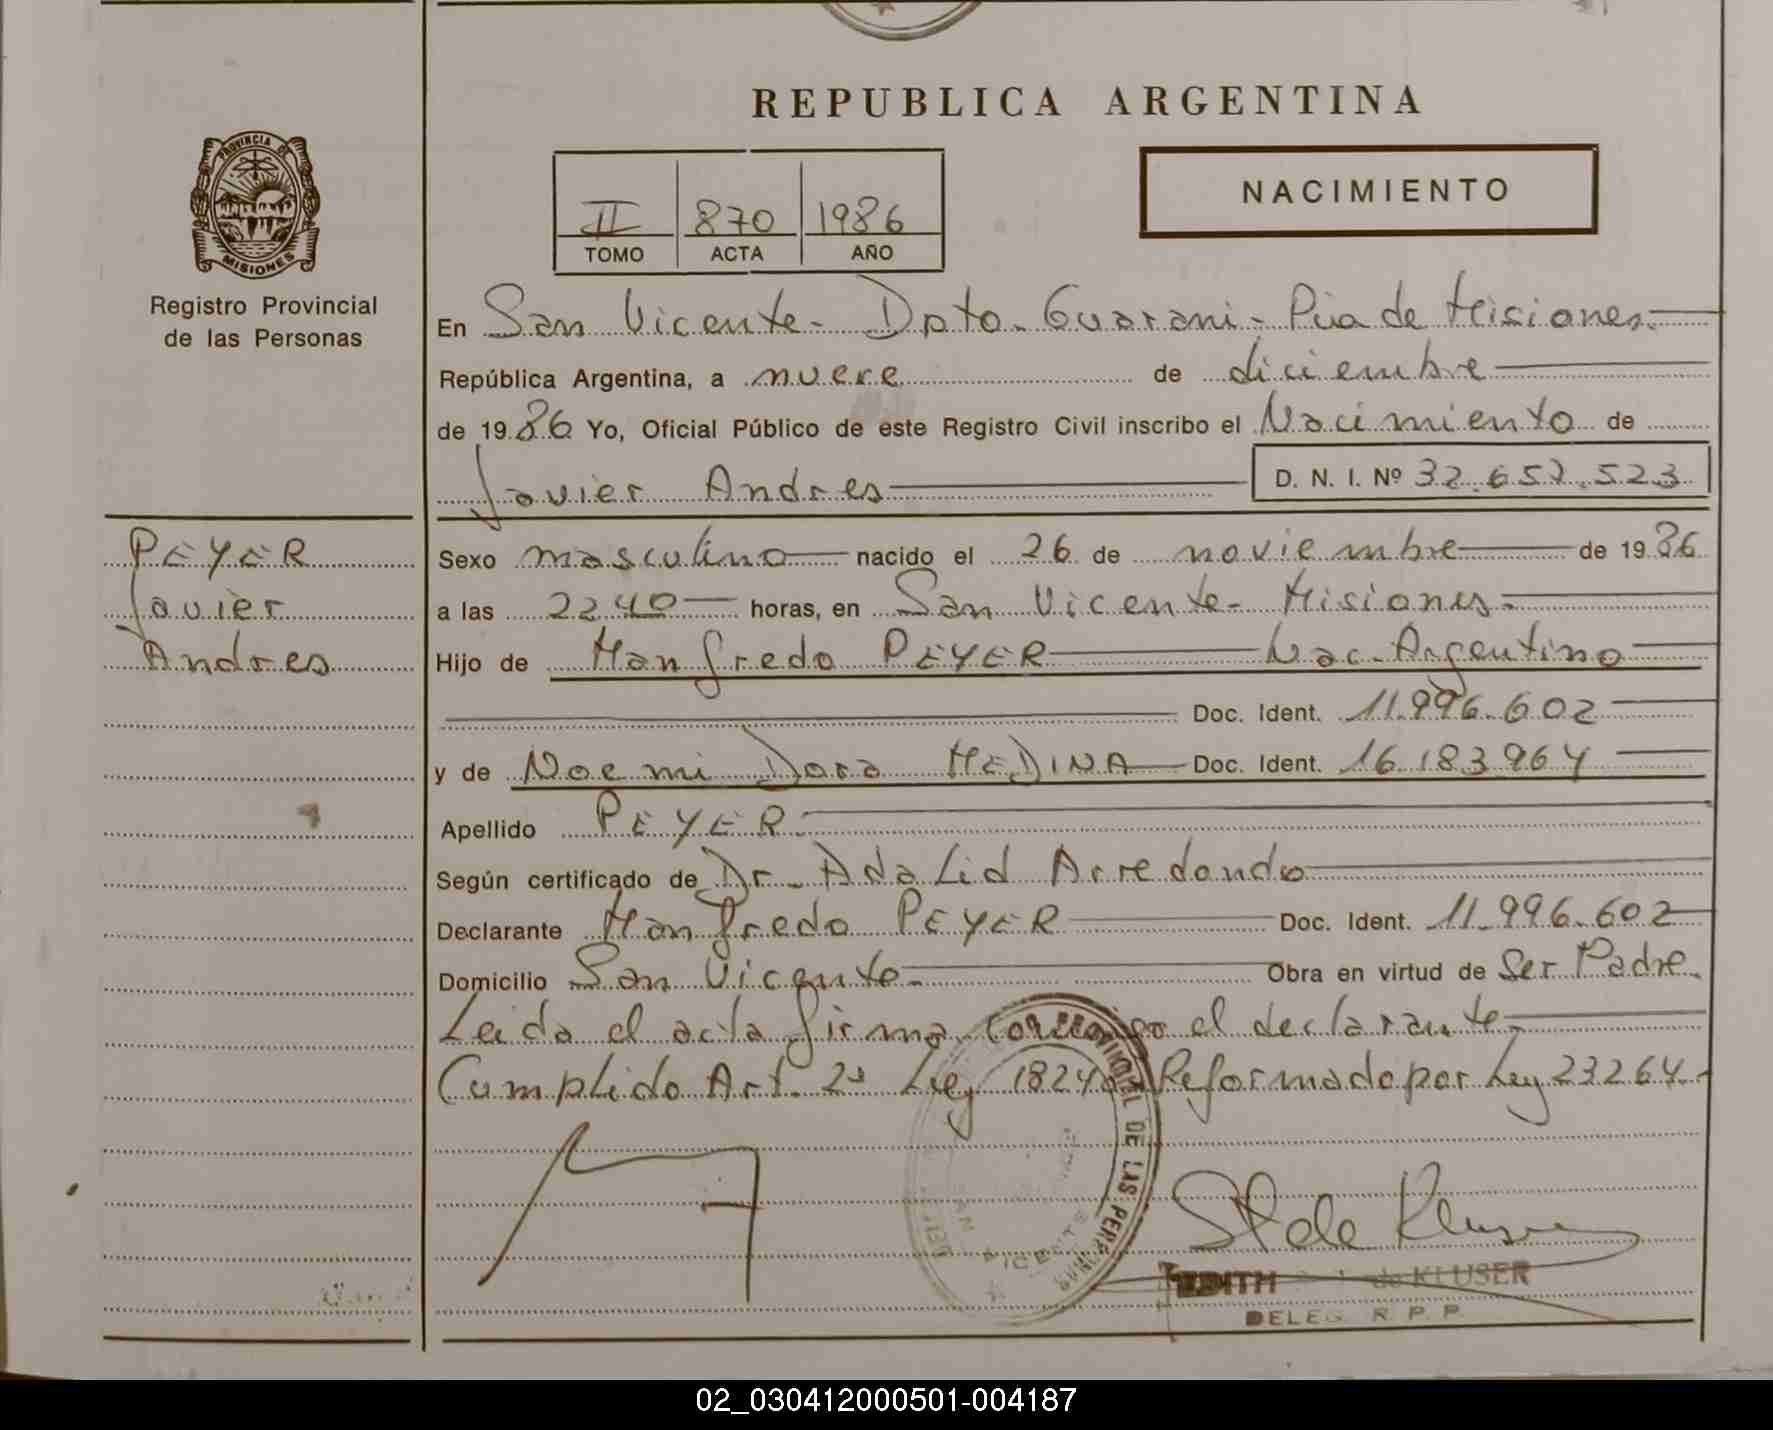 REPUBLICA ARGENTINA
NACIMIENTO
II 870 1986
TOMO ACTA AÑO
PROVINCIA DE
MISIONES
Registro Provincial
de las Personas
En San Vicente - Dpto. Guarani - Pcia de Misiones
República Argentina, a nueve de diciembre
de 1986 Yo, Oficial Público de este Registro Civil inscribo el Nacimiento de
Javier Andres D. N. I. Nº 32.657.523
PEYER
Javier
Andres
Sexo masculino nacido el 26 de noviembre de 1986
a las 22 40 horas, en San Vicente - Misiones
Hijo de Manfredo PEYER Nac. Argentino
Doc. Ident. 11.996.602
y de Noemi Dora MEDINA Doc. Ident. 16.183.964
Apellido PEYER
Según certificado de Dr. Adalid Arredondo
Declarante Manfredo PEYER Doc. Ident. 11.996.602
Domicilio San Vicente Obra en virtud de Ser Padre.
Leida el acta firma conmigo el declarante
Cumplido Art. 2º Ley 18248 Reformado por Ley 23264
DE LAS PERSONAS
SAN VICENTE
St de Kluser
EDITH de KLUSER
DELEG. R. P. P.
02_030412000501-004187